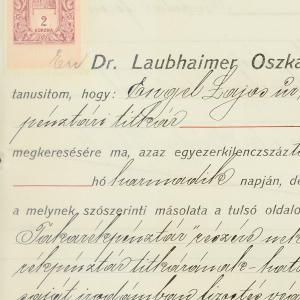 2
KORONA
Én Dr. Laubhaimer Oszká
tanusitom, hogy: Engel Lajos úr,
pénztári titkár
megkeresésére ma, azaz egyezerkilenczszázt
hó harmadik napján, de
a melynek szószerinti másolata a tulsó oldalo
Takarékpénztár részére
rékpénztár titkárának hat
saját irodámban fizetés vé